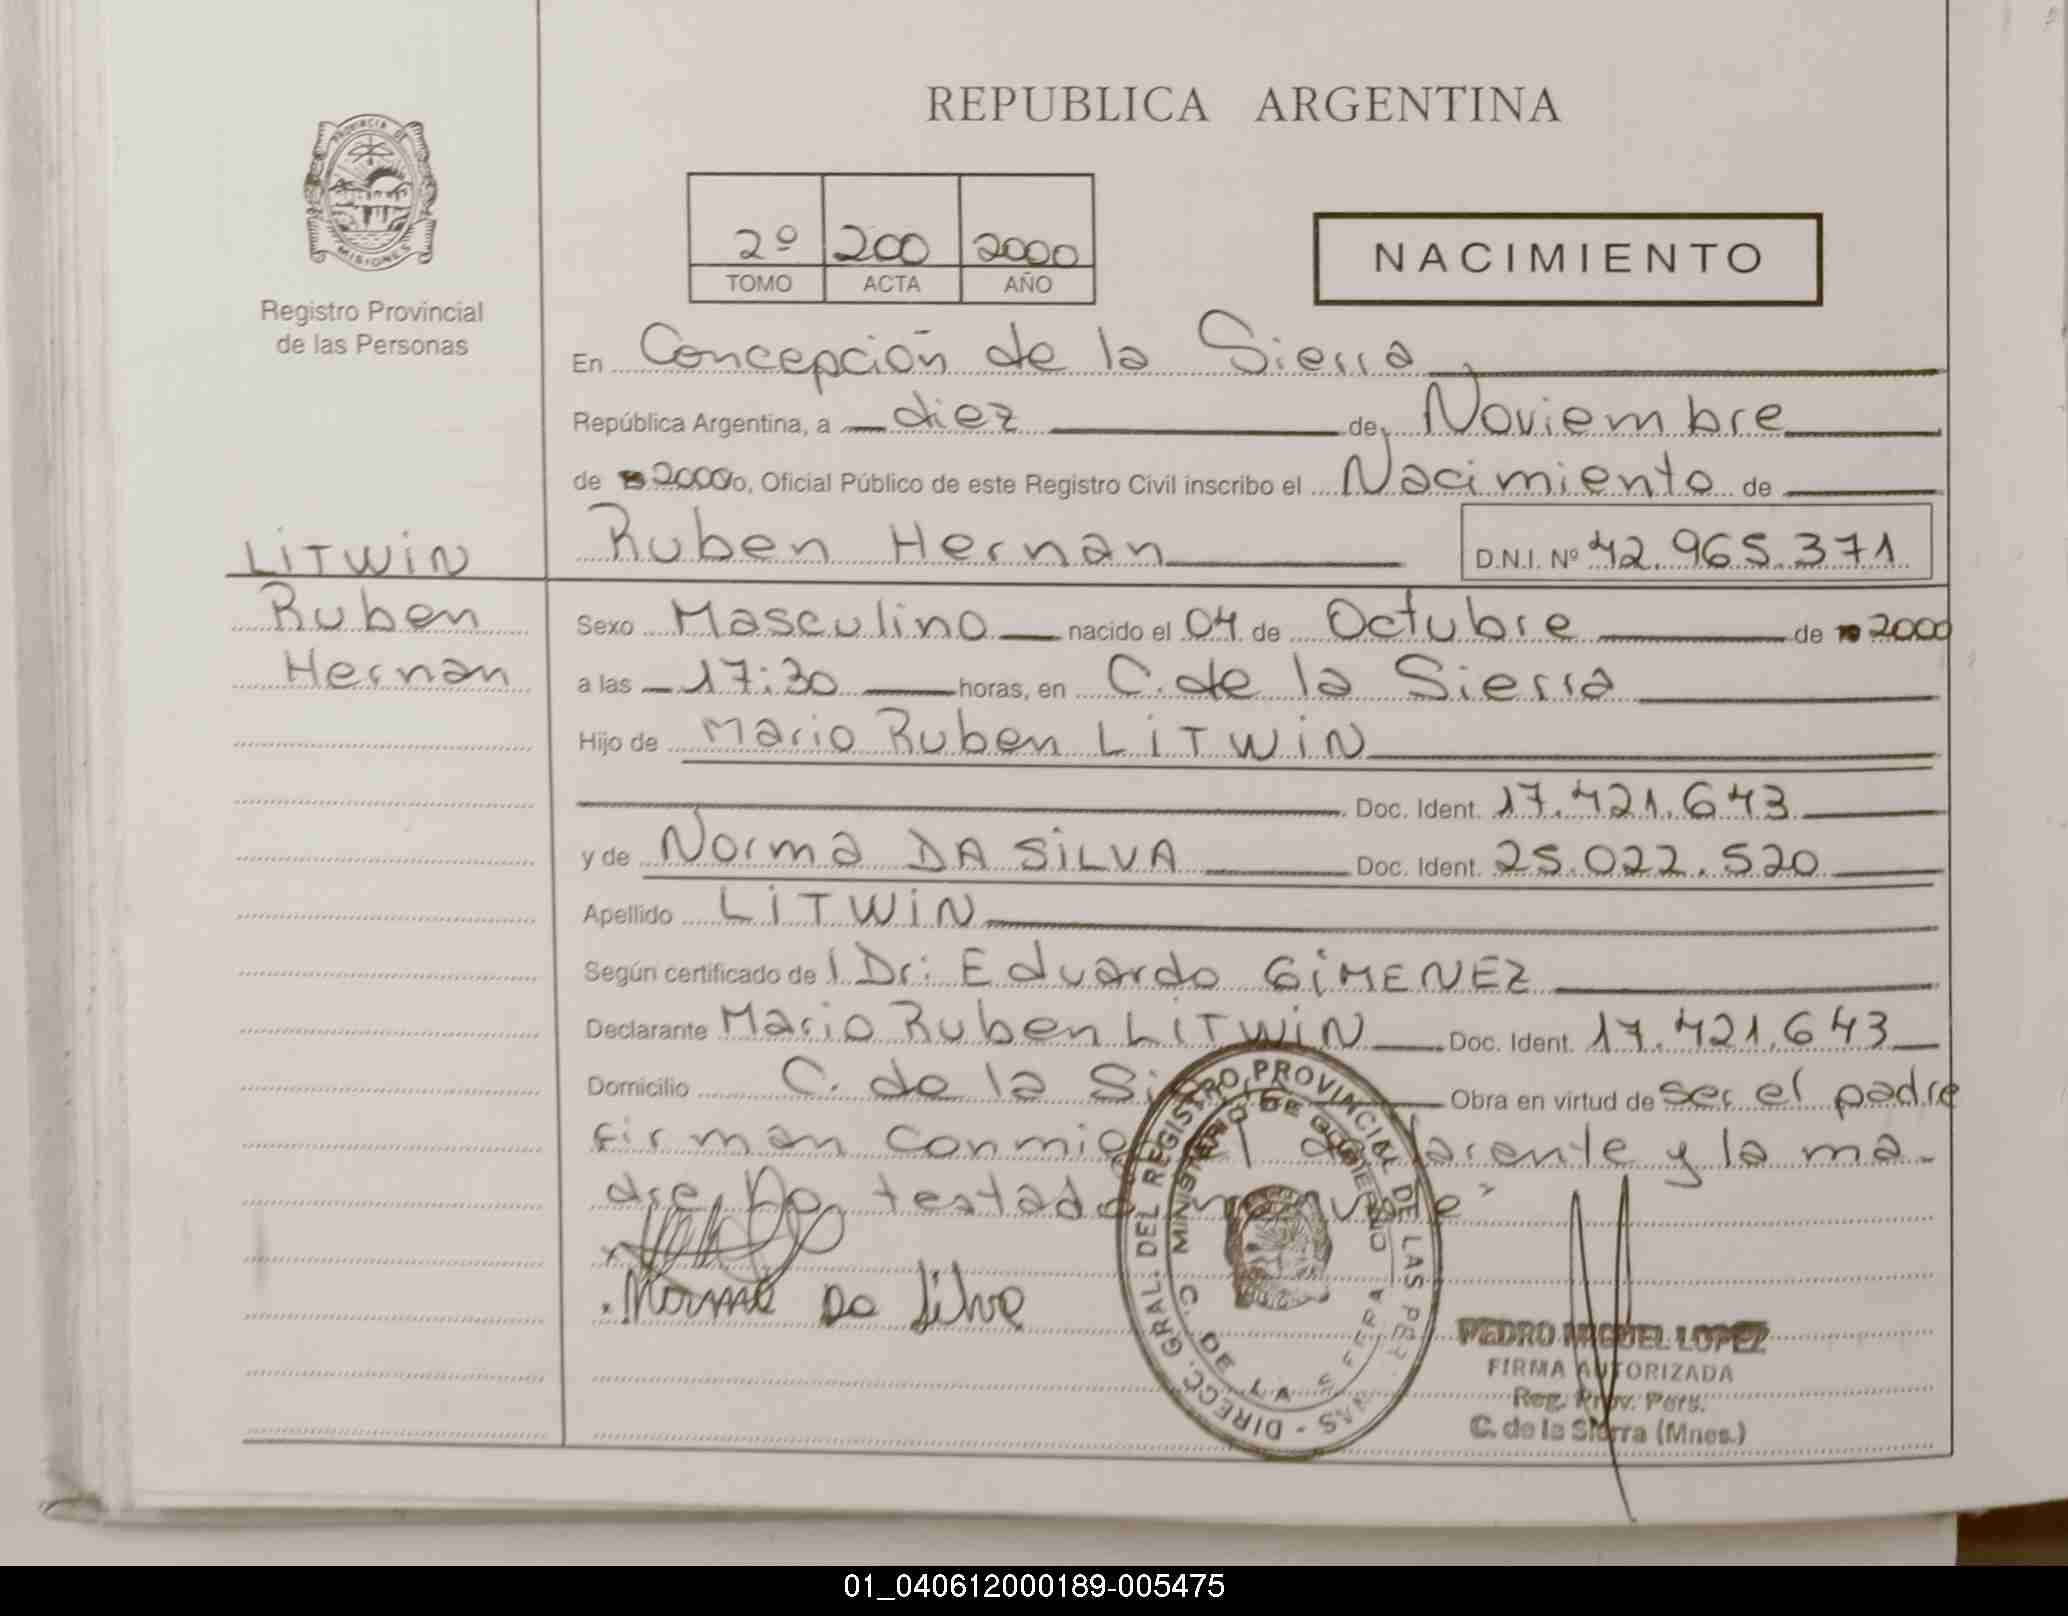 REPUBLICA ARGENTINA
PROVINCIA DE MISIONES
Registro Provincial
de las Personas
2º 200 2000
TOMO ACTA AÑO
NACIMIENTO
En Concepción de la Sierra
República Argentina, a diez de Noviembre
de 2000, Oficial Público de este Registro Civil inscribo el Nacimiento de
LITWIN
Ruben
Hernan
Ruben Hernan D.N.I. Nº 42.965.371
Sexo Masculino nacido el 04 de Octubre de 2000
a las 17:30 horas, en C. de la Sierra
Hijo de Mario Ruben LITWIN
Doc. Ident. 17.421.643
y de Norma DA SILVA Doc. Ident. 25.022.520
Apellido LITWIN
Según certificado de l Dr: Eduardo GIMENEZ
Declarante Mario Ruben LITWIN Doc. Ident. 17.421.643
Domicilio C. de la Obra en virtud de ser el padre
Firman y la ma-
dre testado
Norma Da Silva
DIRECC. GRAL. DEL REGISTRO PROVINCIAL DE LAS
MINISTERIO DE GOBIERNO
C. DE LA SIERRA
PEDRO MIGUEL LOPEZ
FIRMA AUTORIZADA
Reg. Prov. Pers.
C. de la Sierra (Mnes.)
01_040612000189-005475